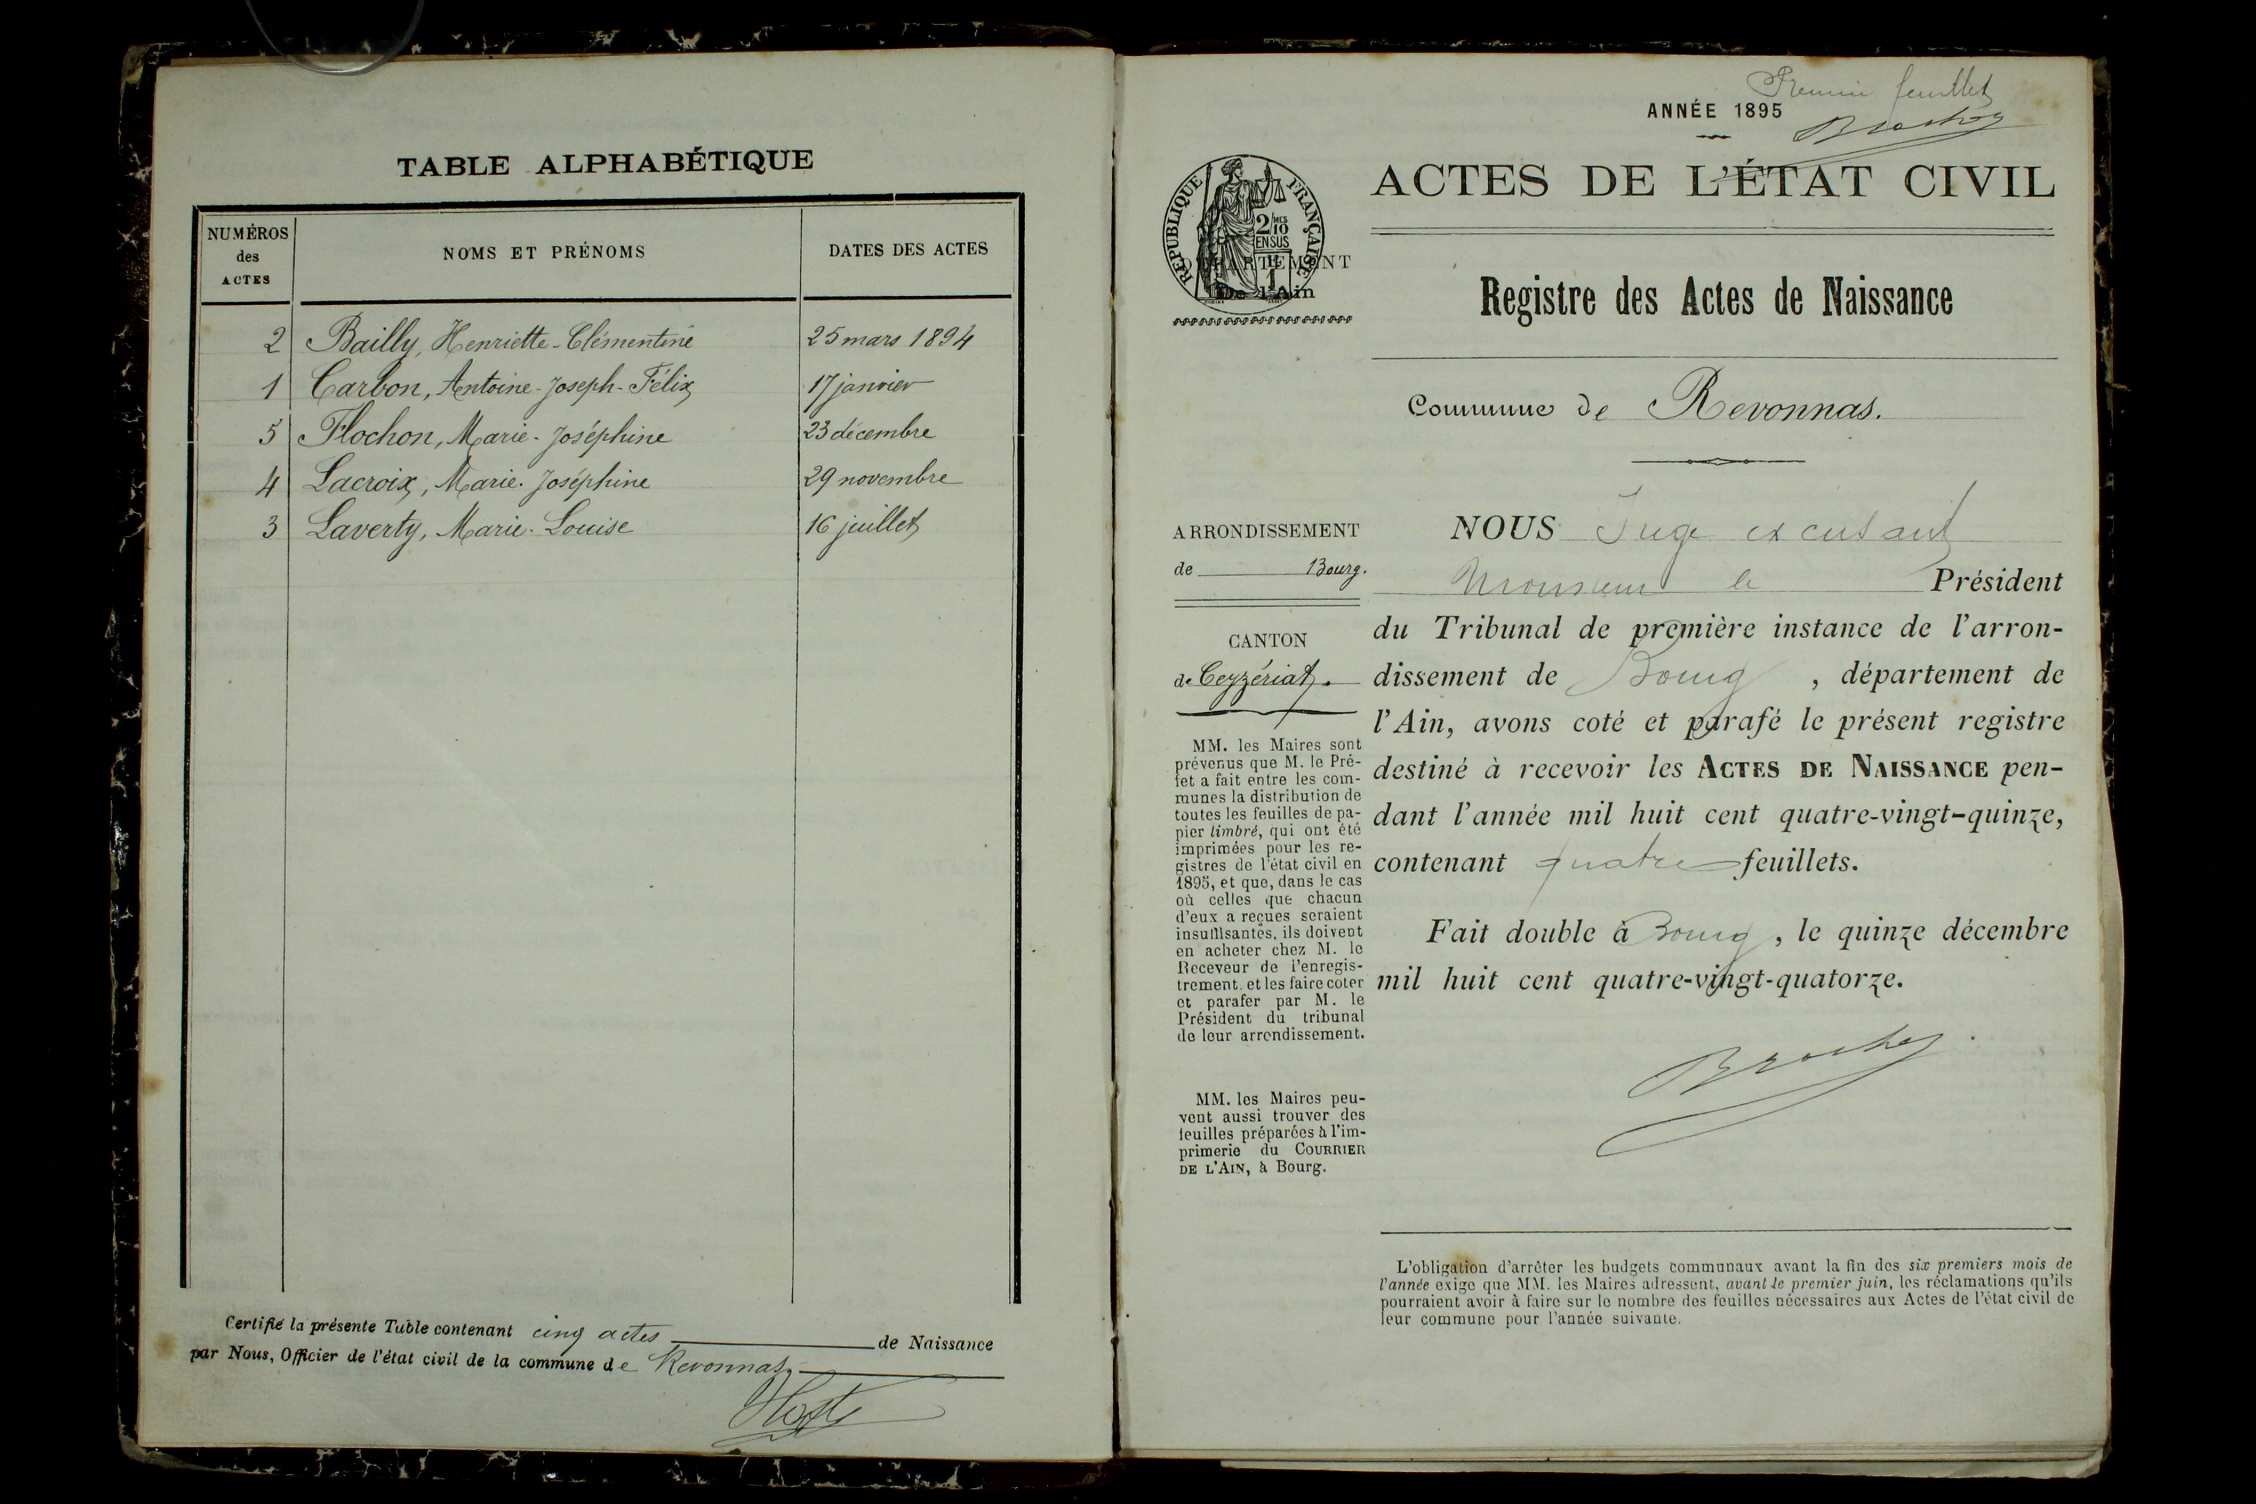 TABLE ALPHABÉTIQUE
NUMÉROS des ACTES
NOMS ET PRÉNOMS
DATES DES ACTES
2 Bailly, Henriette-Clémentine 25 mars 1894
1 Carbon, Antoine-Joseph-Félix 17 janvier
5 Flochon, Marie-Joséphine 23 décembre
4 Lacroix, Marie-Joséphine 29 novembre
3 Laverty, Marie-Louise 16 juillet
Certifié la présente Table contenant cinq actes de Naissance
par Nous, Officier de l'état civil de la commune de Revonnas
Premier feuillet
ANNÉE 1895
ACTES DE L'ÉTAT CIVIL
RÉPUBLIQUE FRANÇAISE
2/10 MES
EN SUS
DÉPARTEMENT
De l'Ain
Registre des Actes de Naissance
Commune de Revonnas.
ARRONDISSEMENT
de Bourg.
CANTON
de Ceyzériat.
MM. les Maires sont
prévenus que M. le Pré-
fet a fait entre les com-
munes la distribution de
toutes les feuilles de pa-
pier timbré, qui ont été
imprimées pour les re-
gistres de l'état civil en
1895, et que, dans le cas
où celles que chacun
d'eux a reçues seraient
insuffisantes, ils doivent
en acheter chez M. le
Receveur de l'enregis-
trement, et les faire coter
et parafer par M. le
Président du tribunal
de leur arrondissement.
MM. les Maires peu-
vent aussi trouver des
feuilles préparées à l'im-
primerie du COURRIER
DE L'AIN, à Bourg.
NOUS Juge excusant
Monsieur le Président
du Tribunal de première instance de l'arron-
dissement de Bourg, département de
l'Ain, avons coté et parafé le présent registre
destiné à recevoir les ACTES DE NAISSANCE pen-
dant l'année mil huit cent quatre-vingt-quinze,
contenant quatre feuillets.
Fait double à Bourg, le quinze décembre
mil huit cent quatre-vingt-quatorze.
L'obligation d'arrêter les budgets communaux avant la fin des six premiers mois de
l'année exige que MM. les Maires adressent, avant le premier juin, les réclamations qu'ils
pourraient avoir à faire sur le nombre des feuilles nécessaires aux Actes de l'état civil de
leur commune pour l'année suivante.